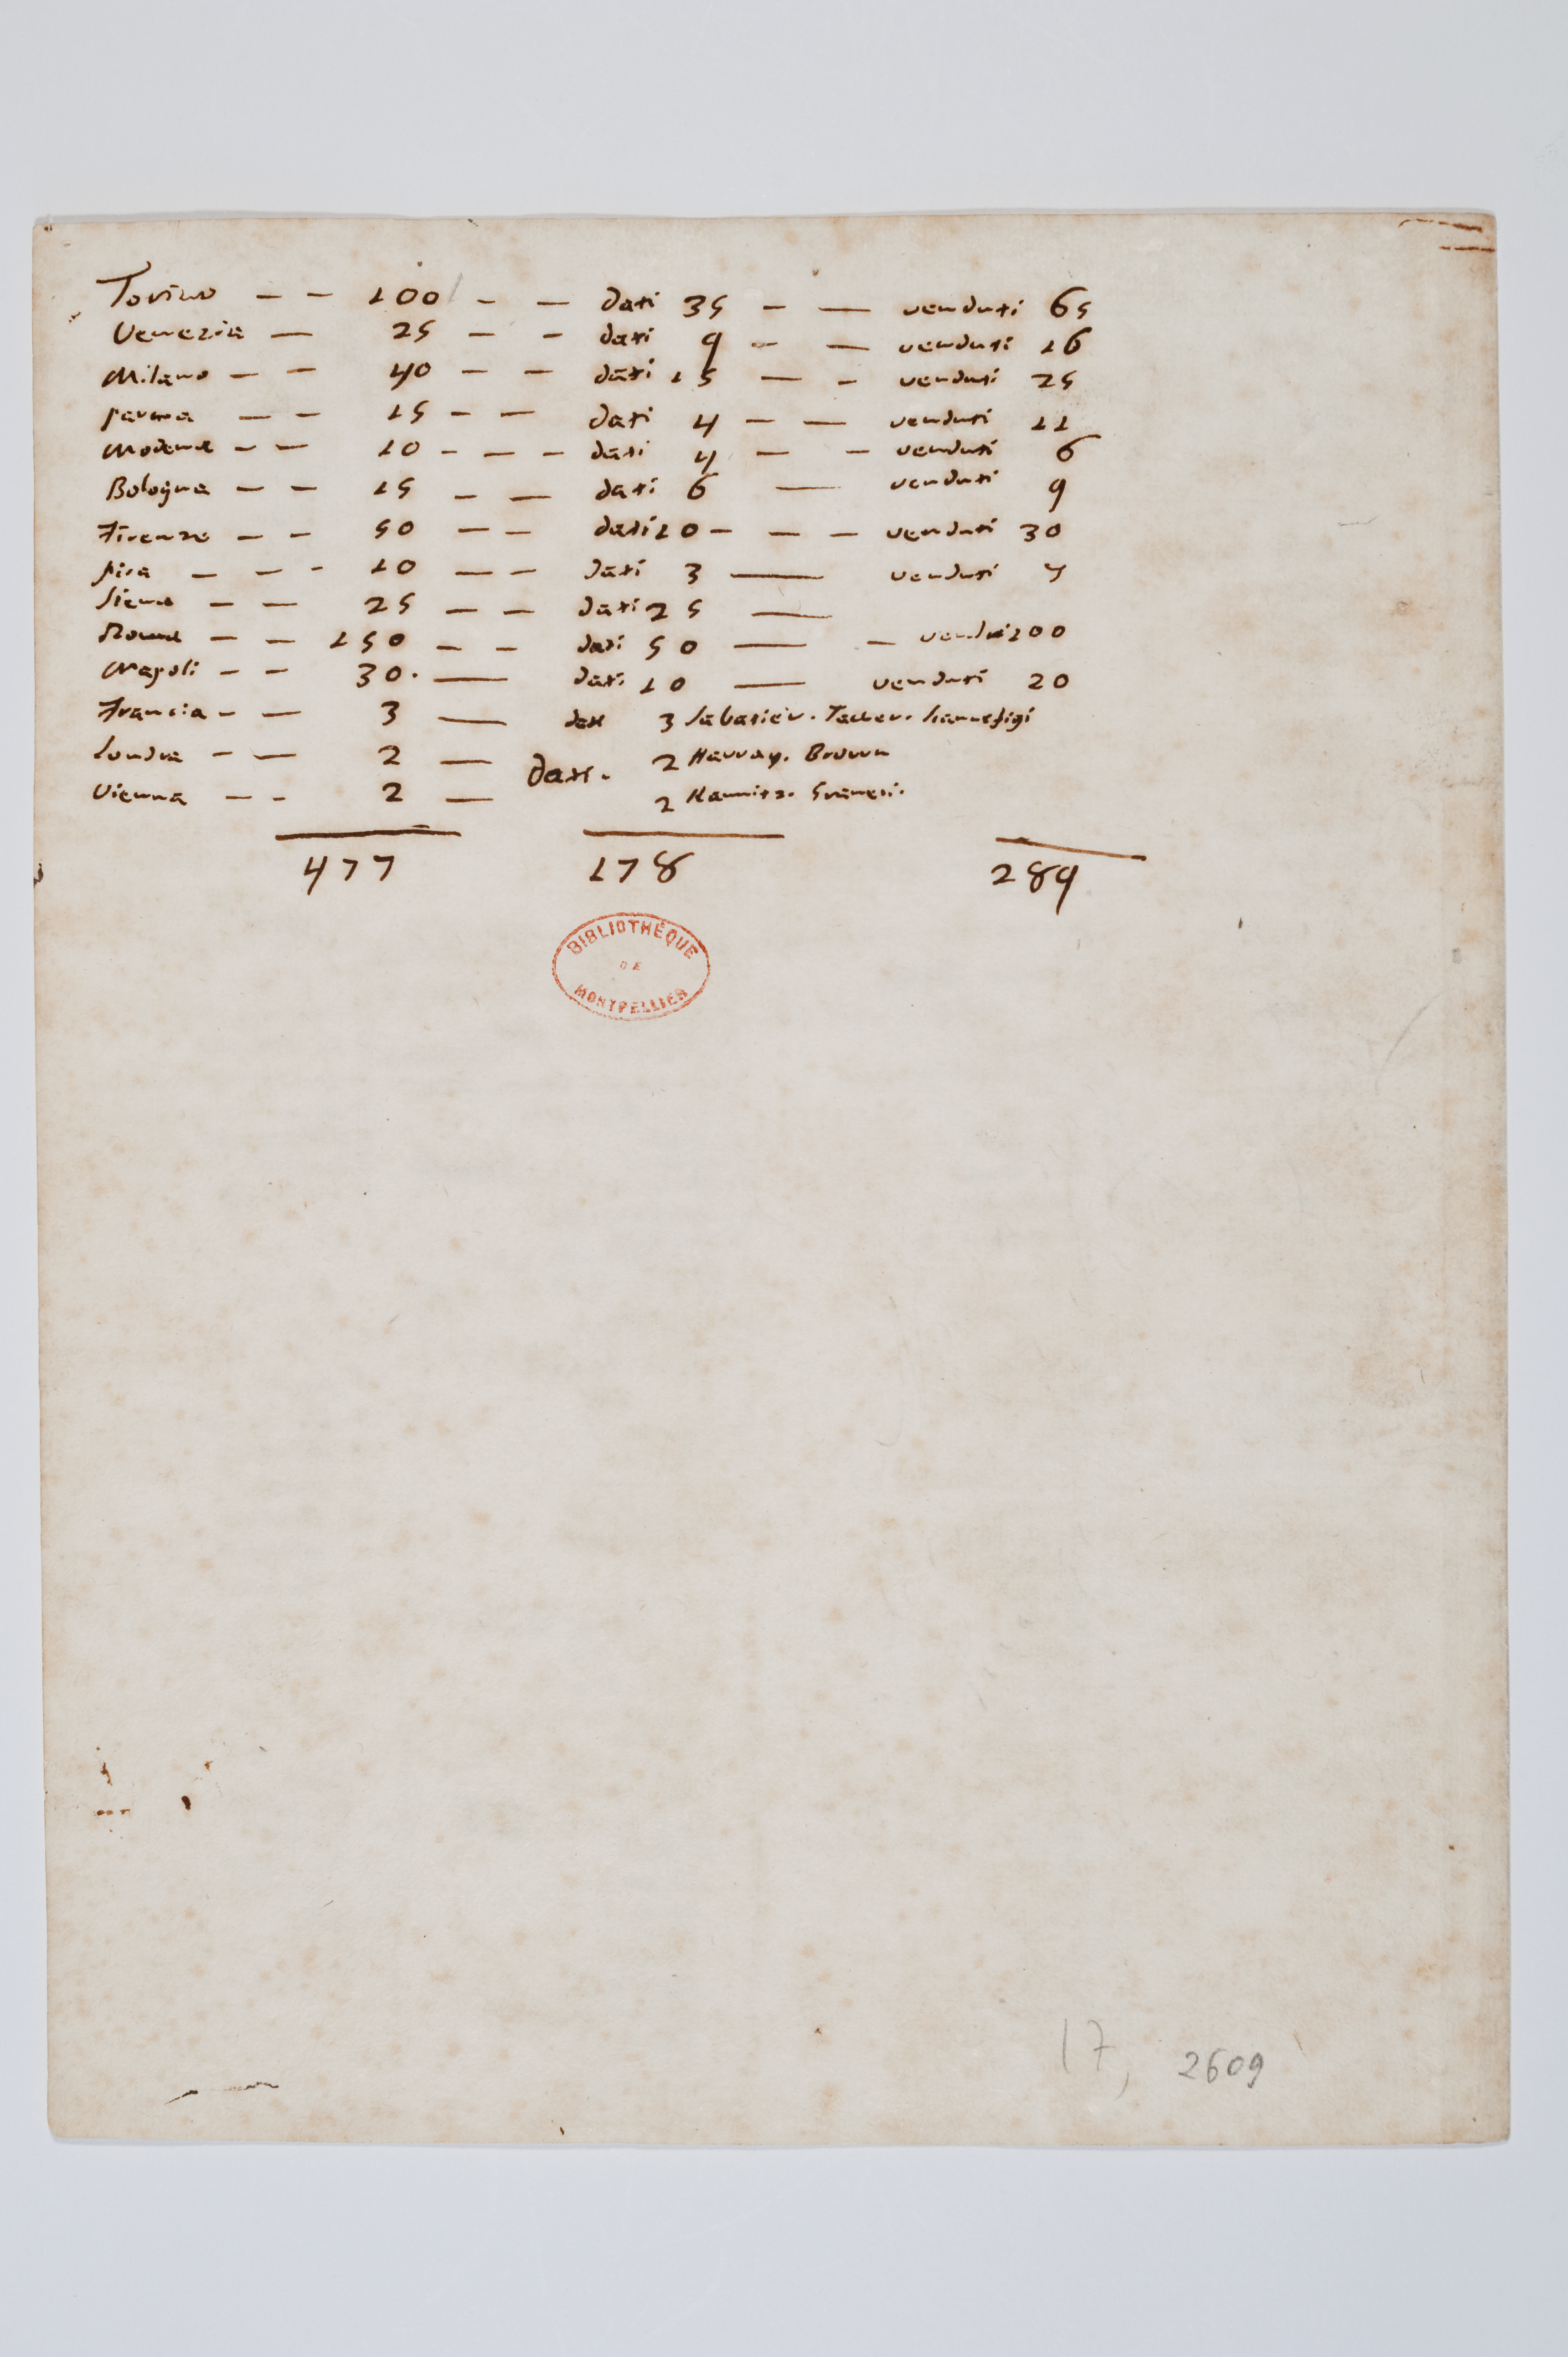 Torino — — 100 — — dati 35 — — venduti 65
Venezia — 25 — — dati 9 — — venduti 16
Milano — — 40 — — dati 15 — — venduti 25
parma — — 15 — — dati 4 — — venduti 11
Modena — — 10 — — — dati 4 — — venduti 6
Bologna — — 15 — — dati 6 — venduti 9
Firenze — — 50 — — dati 10 — — — venduti 30
pisa — — — 10 — — dati 3 — venduti 7
Siena — — 25 — — dati 25 —
Roma — — 150 — — dati 50 — — venduti 100
Napoli — — 30. — dati 10 — venduti 20
Francia — — 3 — dati 3 Sabatier.
Londra — — 2 — dati. 2 Brown
Vienna — — 2 — 2 Kaunitz. Graneri.
477 178 289
BIBLIOTHÈQUE
DE
MONTPELLIER
17, 2609